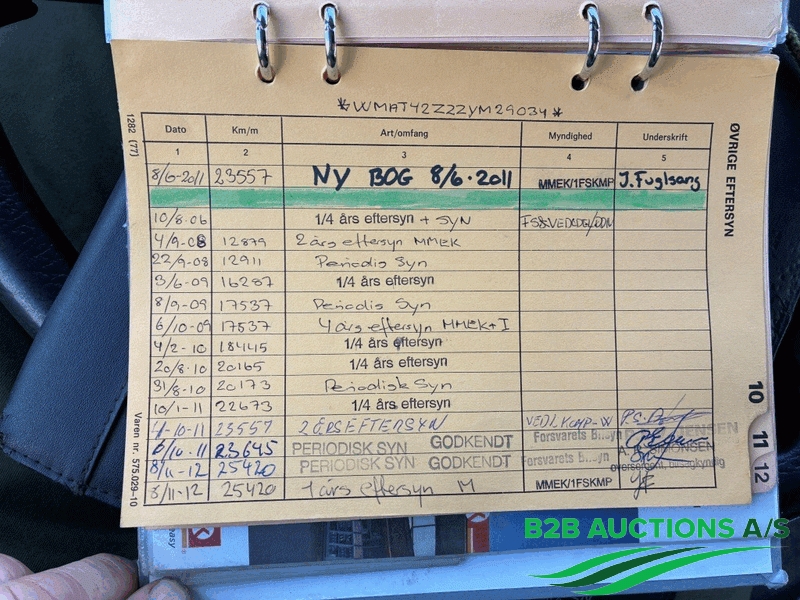 *WMAT42ZZZYM29034*
1282 (77)
ØVRIGE EFTERSYN
Dato Km/m Art/omfang Myndighed Underskrift
1 2 3 4 5
8/6-2011 23557 NY BOG 8/6-2011 MMEK/1FSKMP J.Fuglsang
10/8-06 1/4 års eftersyn + SYN
4/9-08 12879 2 års eftersyn MMEK
22/9-08 12911 Periodis Syn
3/6-09 16287 1/4 års eftersyn
8/9-09 17537 Periodis Syn
6/10-09 17537 4 års eftersyn MMEK+I
4/2-10 18445 1/4 års eftersyn
20/8-10 20165 1/4 års eftersyn
31/8-10 20173 Periodisk Syn
10/1-11 22673 1/4 års eftersyn
4-10-11 23557 2 ÅRSEFTERSYN VEDL.KOMP-W
6/10-11 23645 PERIODISK SYN GODKENDT Forsvarets
8/11-12 25420 PERIODISK SYN GODKENDT Forsvarets
8/11-12 25420 1 års eftersyn M MMEK/1FSKMP
10
11
12
Varen nr. 575.029-10
easy
B2B AUCTIONS A/S